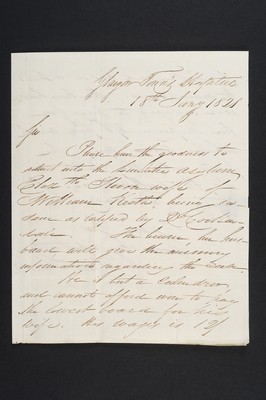 Glasgow Town's Hospital
18th Jany 1821
Sir
Please have the goodness to
admit into the Lunatic Asylum
Elizth wife of
William being in=
sane as certified by Dr
The bearer, her hus=
band will give the necessary
information regarding the
He is but a
and cannot afford now to pay
the lowest board for his
wife. His wages is